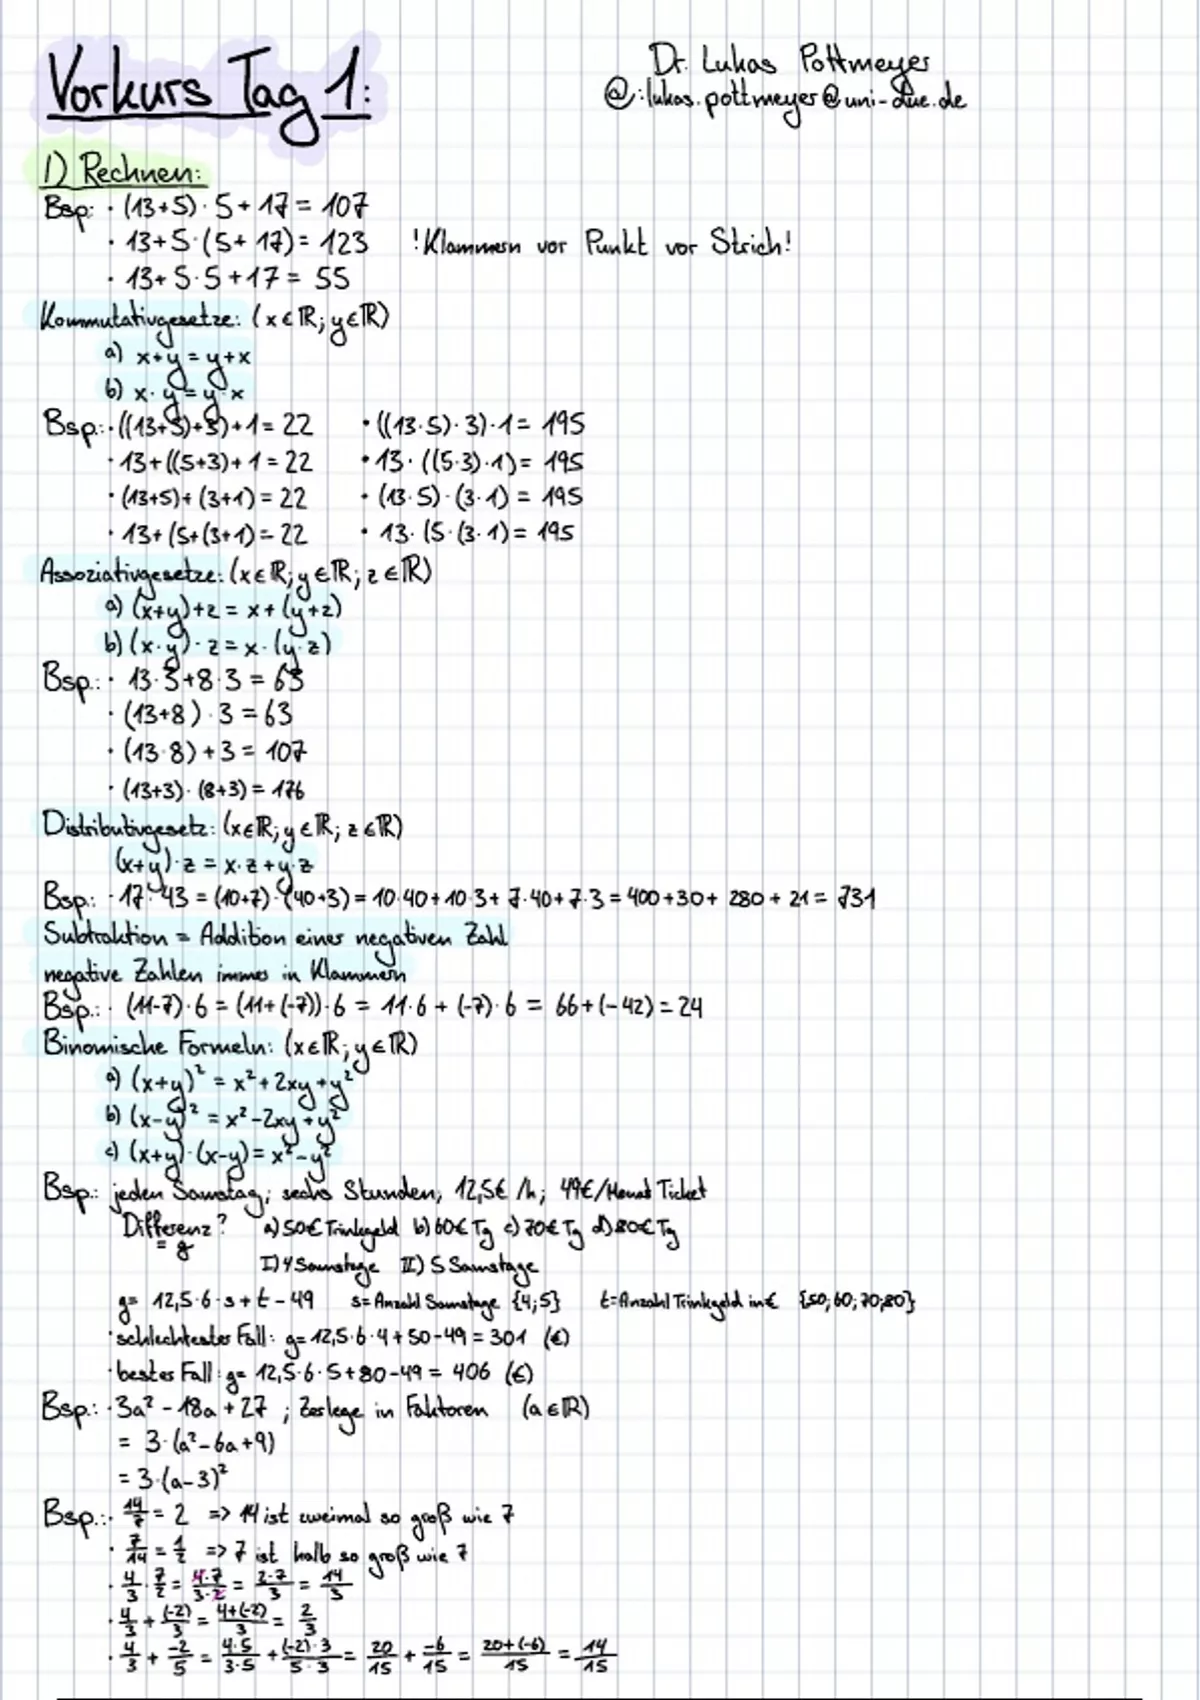 Vorkurs Tag 1:
Dr. Lukas Pottmeyer
@:lukas.pottmeyer@uni-due.de
1) Rechnen:
Bsp: · (13+5) · 5 + 17 = 107
· 13+5·(5+17) = 123 !Klammern vor Punkt vor Strich!
· 13+5·5+17 = 55
Kommutativgesetze: (x∈ℝ; y∈ℝ)
a) x+y = y+x
b) x·y = y·x
Bsp.: · ((13+5)+3)+1 = 22 · ((13·5)·3)·1 = 195
· 13+((5+3)+1 = 22 · 13·((5·3)·1) = 195
· (13+5)+(3+1) = 22 · (13·5)·(3·1) = 195
· 13+(5+(3+1) = 22 · 13·(5·(3·1) = 195
Assoziativgesetze: (x∈ℝ; y∈ℝ; z∈ℝ)
a) (x+y)+z = x+(y+z)
b) (x·y)·z = x·(y·z)
Bsp.: · 13·3+8·3 = 63
· (13+8)·3 = 63
· (13·8)+3 = 107
· (13+3)·(8+3) = 176
Distributivgesetz: (x∈ℝ; y∈ℝ; z∈ℝ)
(x+y)·z = x·z+y·z
Bsp.: · 17·43 = (10+7)·(40+3) = 10·40+10·3+7·40+7·3 = 400+30+280+21 = 731
Subtraktion = Addition einer negativen Zahl
negative Zahlen immer in Klammern
Bsp.: · (11-7)·6 = (11+(-7))·6 = 11·6+(-7)·6 = 66+(-42) = 24
Binomische Formeln: (x∈ℝ; y∈ℝ)
a) (x+y)² = x²+2xy+y²
b) (x-y)² = x²-2xy+y²
c) (x+y)·(x-y) = x²-y²
Bsp.: jeden Samstag; sechs Stunden; 12,5€/h; 49€/Monat Ticket
Differenz? a) 50€ Trinkgeld b) 60€ Tg c) 70€ Tg d) 80€ Tg
= g
I) 4 Samstage II) 5 Samstage
g= 12,5·6·s+t-49 s=Anzahl Samstage {4;5} t=Anzahl Trinkgeld in € {50;60;70;80}
· schlechtester Fall: g=12,5·6·4+50-49 = 301 (€)
· bester Fall: g= 12,5·6·5+80-49 = 406 (€)
Bsp.: · 3a²-18a+27 ; Zerlege in Faktoren (a∈ℝ)
= 3·(a²-6a+9)
= 3·(a-3)²
Bsp.: · 14/7 = 2 => 14 ist zweimal so groß wie 7
· 7/14 = 1/2 => 7 ist halb so groß wie 7
· 4/3 · 7/2 = 4·7/3·2 = 2·7/3 = 14/3
· 4/3 + (-2)/3 = 4+(-2)/3 = 2/3
· 4/3 + -2/5 = 4·5/3·5 + (-2)·3/5·3 = 20/15 + -6/15 = 20+(-6)/15 = 14/15